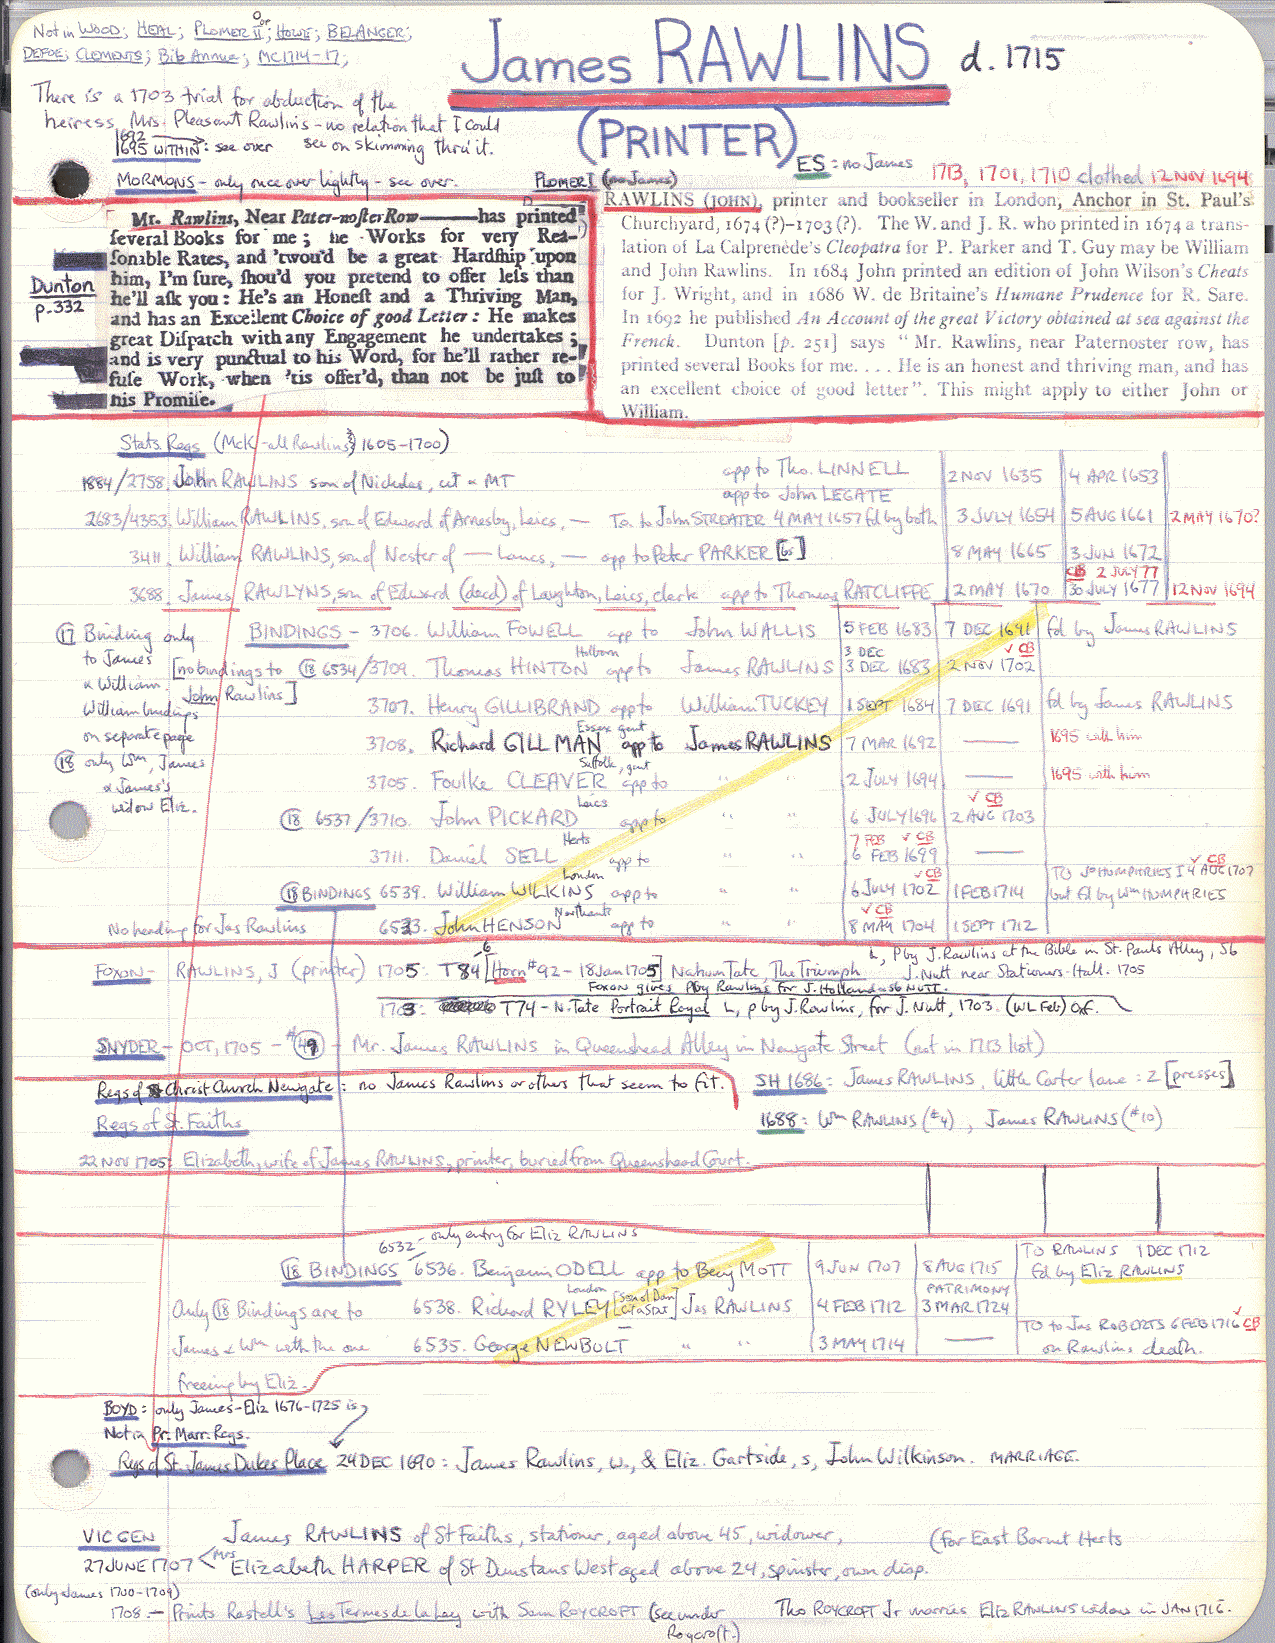 Not in WOOD; HEAL; PLOMER II; HOWE; BELANGER;
DEFOE; CLEMENTS; Bib Annue; MC1714-17;
James RAWLINS d. 1715
(PRINTER)
There is a 1703 trial for abduction of the
heiress, Mrs. Pleasant Rawlins - no relation that I could
see on skimming thru it.
1692
1695 WITHIN: see over
MORMONS - only once over lightly - see over.
PLOMER I (no James)
ES: no James
1713, 1701, 1710 clothed 12 NOV 1694
Dunton
p.332
Mr. Rawlins, Near Pater-noster Row——has printed
several Books for me; he Works for very Rea-
sonable Rates, and 'twou'd be a great Hardship upon
him, I'm sure, shou'd you pretend to offer less than
he'll ask you: He's an Honest and a Thriving Man,
and has an Excellent Choice of good Letter: He makes
great Dispatch with any Engagement he undertakes;
and is very punctual to his Word, for he'll rather re-
fuse Work, when 'tis offer'd, than not be just to
his Promise.
RAWLINS (JOHN), printer and bookseller in London, Anchor in St. Paul's
Churchyard, 1674 (?)–1703 (?). The W. and J. R. who printed in 1674 a trans-
lation of La Calprenède's Cleopatra for P. Parker and T. Guy may be William
and John Rawlins. In 1684 John printed an edition of John Wilson's Cheats
for J. Wright, and in 1686 W. de Britaine's Humane Prudence for R. Sare.
In 1692 he published An Account of the great Victory obtained at sea against the
French. Dunton [p. 251] says “Mr. Rawlins, near Paternoster row, has
printed several Books for me. . . . He is an honest and thriving man, and has
an excellent choice of good letter”. This might apply to either John or
William.
Stats. Regs (McK - all Rawlins 1605-1700)
1884/2758. John RAWLINS son of Nicholas, cit & MT app to Tho. LINNELL 2 NOV 1635 4 APR 1653
app to John LEGATE
2683/4353. William RAWLINS, son of Edward of Arnesby, Leics, — To to John STREATER 4 MAY 1657 fd by both 3 JULY 1654 5 AUG 1661 2 MAY 1670?
3411. William RAWLINS, son of Nester of — Lancs, — app to Peter PARKER [bs] 8 MAY 1665 3 JUN 1672
CB 2 JULY 77
3688. James RAWLYNS, son of Edward (decd) of Laughton, Leics, clerk app to Thomas RATCLIFFE 2 MAY 1670 30 JULY 1677 12 NOV 1694
17 Binding only
to James
& William.
William bindings
on separate page
18 only Wm, James
& James's
widow Eliz.
BINDINGS - 3706. William FOWELL app to John WALLIS 5 FEB 1683 7 DEC 1691 fd by James RAWLINS
[no bindings to John Rawlins]
Holborn 3 DEC CB
18 6534/3709. Thomas HINTON app to James RAWLINS 3 DEC 1683 2 NOV 1702
3707. Henry GILLIBRAND app to William TUCKEY 1 SEPT 1684 7 DEC 1691 fd by James RAWLINS
Essex gent
3708. Richard GILLMAN app to James RAWLINS 7 MAR 1692 — 1695 with him
Suffolk, gent
3705. Foulke CLEAVER app to " " 2 JULY 1694 — 1695 with him
Leics CB
18 6537/3710. John PICKARD app to " " 6 JULY 1696 2 AUG 1703
Herts 7 FEB CB
3711. Daniel SELL app to " " 6 FEB 1699 —
London CB
18 BINDINGS 6539. William WILKINS app to " " 6 JULY 1702 1 FEB 1714
TO J HUMPHRIES I 4 AUG 1707 CB
but fd by Wm HUMPHRIES
Northants CB
No heading for Jas Rawlins 6533. John HENSON app to " " 8 MAY 1704 1 SEPT 1712
FOXON - RAWLINS, J (printer) 1705: T84 [Horn #92 - 18 Jan 1705] Nahum Tate, The Triumph
L, P by J. Rawlins at the Bible in St. Pauls Alley, sb
J. Nutt near Stationers-Hall. 1705
FOXON gives P by Rawlins for J. Holland & sb NUTT.
1703: T74 - N. Tate Portrait Royal L, p by J. Rawlins, for J. Nutt, 1703. (WL Feb) Oxf.
SNYDER - OCT, 1705 - #49 - Mr. James RAWLINS in Queenshead Alley in Newgate Street (not in 1713 list)
Regs of Christ Church Newgate: no James Rawlins or others that seem to fit.
SH 1686: James RAWLINS, little Carter lane: 2 [presses]
Regs of St. Faiths
1688: Wm RAWLINS (#4), James RAWLINS (#10)
22 NOV 1705: Elizabeth, wife of James RAWLINS, printer, buried from Queenshead Court.
6532 - only entry for Eliz RAWLINS
18 BINDINGS 6536. Benjamin ODELL app to Benj MOTT 9 JUN 1707 8 AUG 1715
TO RAWLINS 1 DEC 1712
fd by Eliz RAWLINS
London PATRIMONY
6538. Richard RYLEY [son of Dan C & Stat] Jas RAWLINS 4 FEB 1712 3 MAR 1724
6535. George NEWBOLT " " 3 MAY 1714 —
TO to Jas ROBERTS 6 FEB 1716 CB
on Rawlins death.
Only 18 Bindings are to
James & Wm with the one
freeing by Eliz.
BOYD: only James-Eliz 1676-1725 is
Not in Pr. Marr. Regs.
Regs of St. James Dukes Place 24 DEC 1690: James Rawlins, w., & Eliz. Gartside, s, John Wilkinson. MARRIAGE.
VIC GEN James RAWLINS of St Faiths, stationer, aged above 45, widower, (for East Barnet Herts
27 JUNE 1707 Mrs Elizabeth HARPER of St Dunstans West aged above 24, spinster, own disp.
(only James 1700-1709)
1708 - Prints Rastell's Les Termes de la Ley with Sam ROYCROFT (see under
Roycroft.)
Tho ROYCROFT Jr marries Eliz RAWLINS widow in JAN 1716.